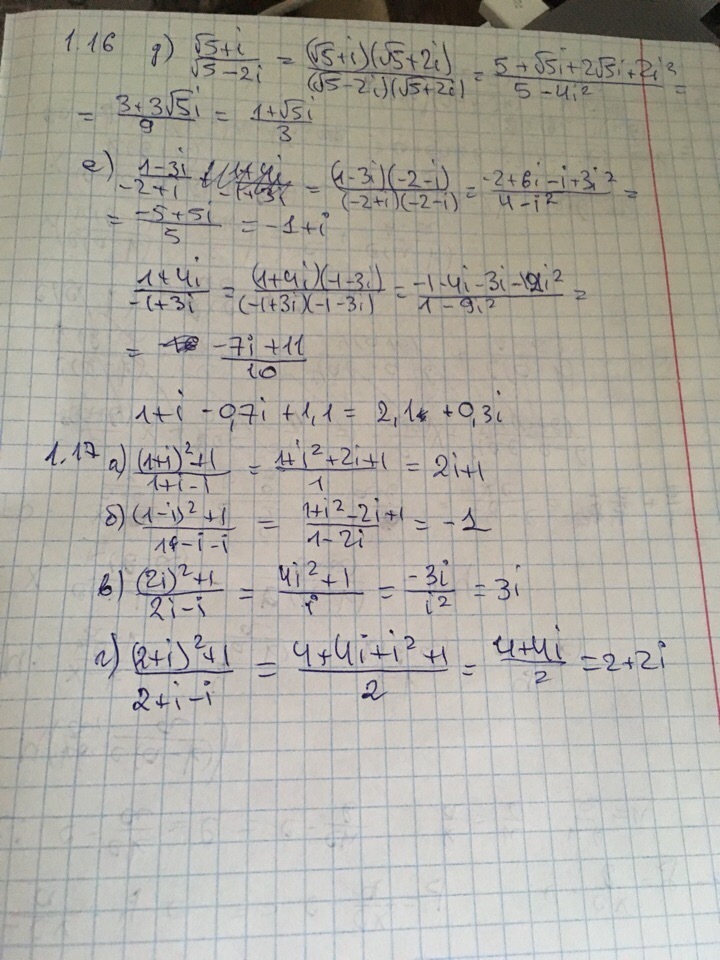 1.16 д) (√5+i)/(√5-2i) = ((√5+i)(√5+2i))/((√5-2i)(√5+2i)) = (5+√5i+2√5i+2i²)/(5-4i²) =
= (3+3√5i)/9 = (1+√5i)/3
е) (1-3i)/(-2+i) = ((1-3i)(-2-i))/((-2+i)(-2-i)) = (-2+6i-i+3i²)/(4-i²) =
= (-5+5i)/5 = -1+i
(1+4i)/(-1+3i) = ((1+4i)(-1-3i))/((-1+3i)(-1-3i)) = (-1-4i-3i-12i²)/(1-9i²) =
= (-7i+11)/10
1+i -0,7i+1,1 = 2,1 +0,3i
1.17 а) ((1+i)²+1)/(1+i-i) = (1+i²+2i+1)/1 = 2i+1
б) ((1-i)²+1)/(1-i-i) = (1+i²-2i+1)/(1-2i) = -1
в) ((2i)²+1)/(2i-i) = (4i²+1)/i = (-3i)/i² = 3i
г) ((2+i)²+1)/(2+i-i) = (4+4i+i²+1)/2 = (4+4i)/2 = 2+2i